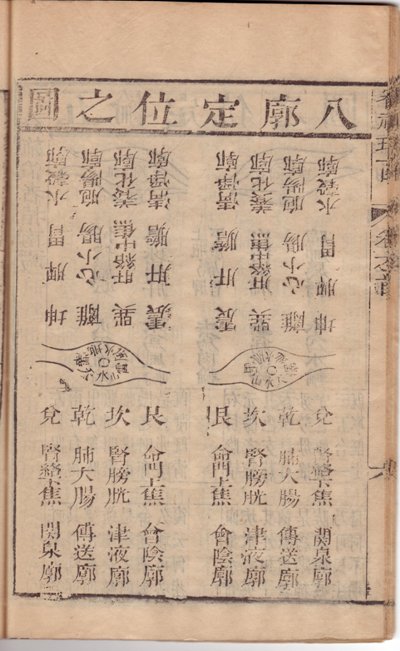 八廓定位之圖
坤 脾胃 水穀廓
離 心小腸 陽廓
巽 肝絡中焦 養化廓
震 肝膽 清淨廓
震 肝膽 清淨廓
巽 肝絡中焦 養化廓
離 心小腸 陽廓
坤 脾胃 水穀廓
兌 腎 焦 關泉廓
乾 肺大腸 傳送廓
坎 腎膀胱 津液廓
艮 命門上焦 會陰廓
艮 命門上焦 會陰廓
坎 腎膀胱 津液廓
乾 肺大腸 傳送廓
兌 腎 焦 關泉廓